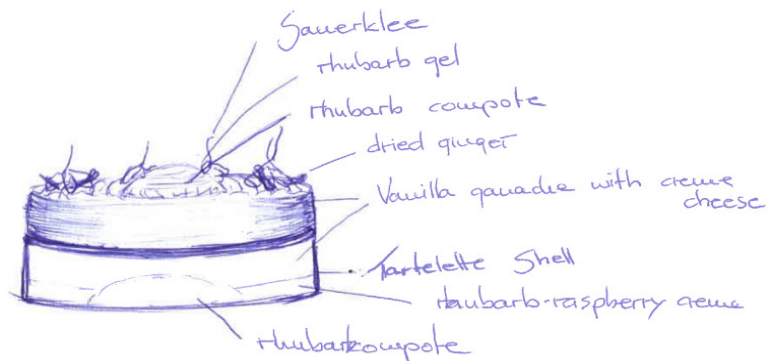 Sauerklee
rhubarb gel
rhubarb compote
dried ginger
Vanilla ganache with creme
cheese
Tartelette Shell
rhubarb-raspberry creme
rhubarbcompote